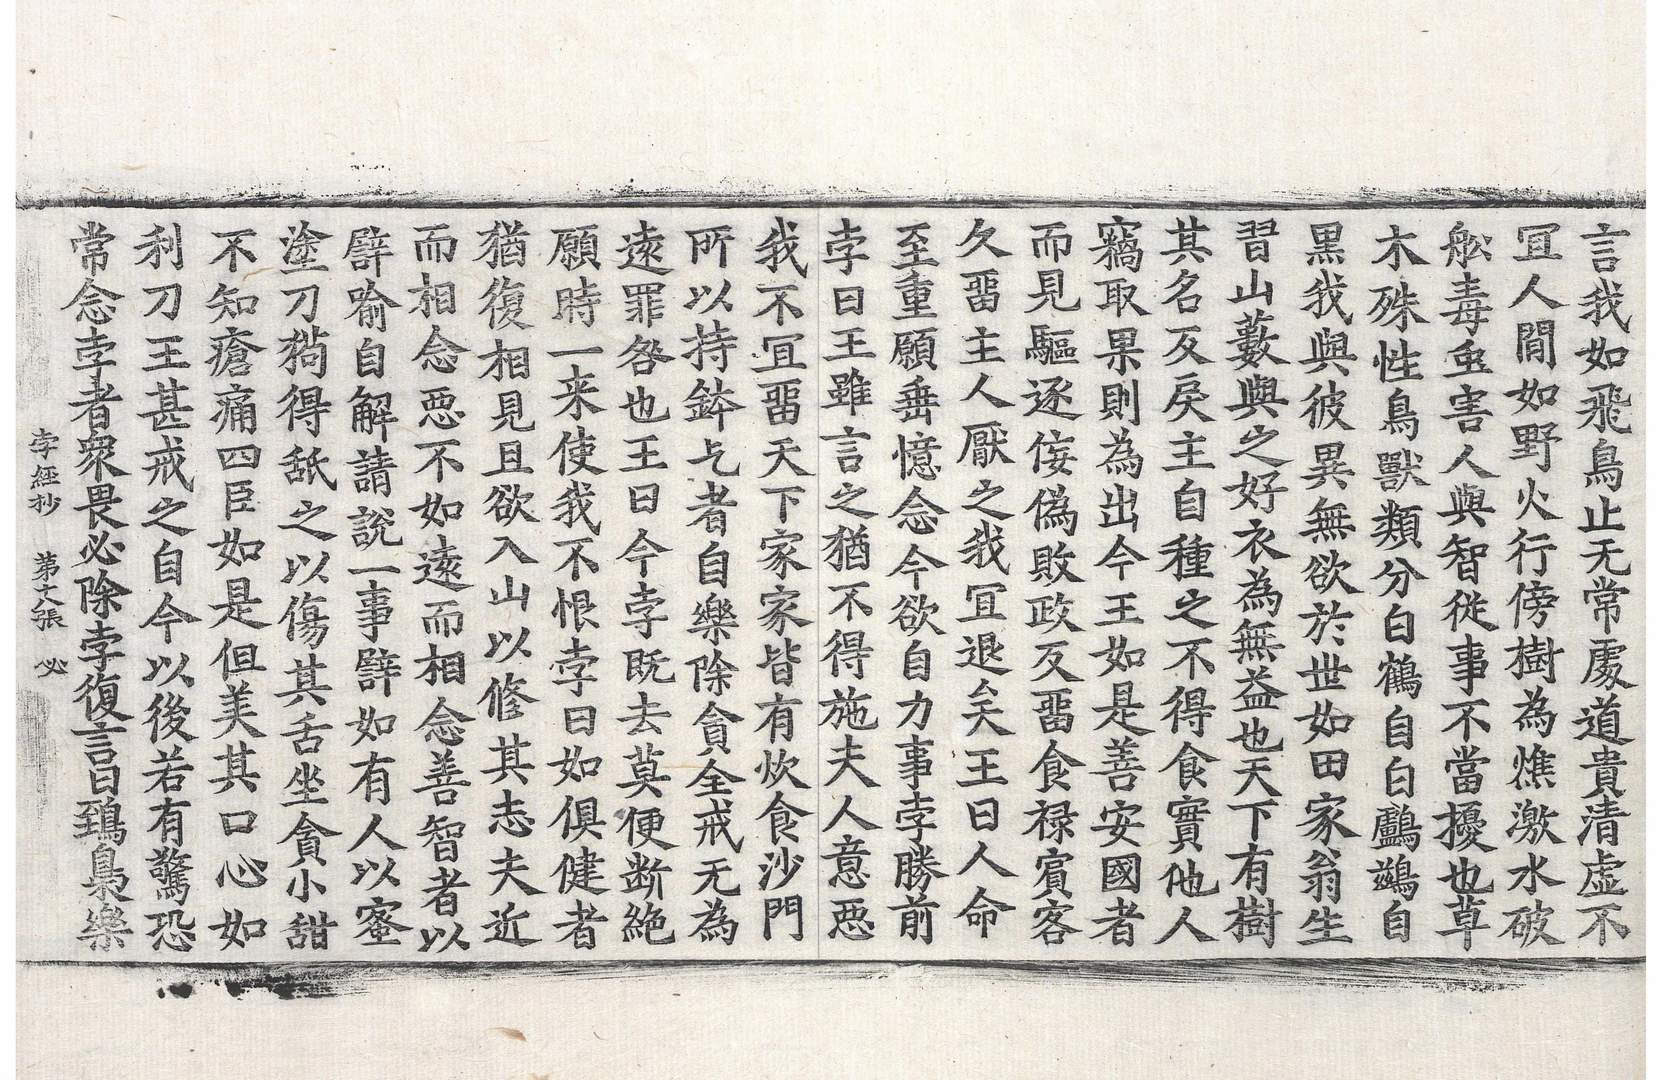 言我如飛鳥止无常處道貴清虛不
冝人間如野火行傍樹為燋激水破
舩毒䖝害人與智從事不當擾也草
木殊性鳥獸類分白鶴自白鸕鷀自
黒我與彼異無欲於世如田家翁生
習山藪與之好衣為無益也天下有樹
其名反戾主自種之不得食實他人
竊取果則為出今王如是善安國者
而見驅逐侫偽敗政反畱食禄賔客
久畱主人厭之我冝退矣王曰人命
至重願垂憶念今欲自力事孛勝前
孛曰王雖言之猶不得施夫人意惡
我不冝畱天下家家皆有炊食沙門
所以持鉢乞者自樂除貪全戒无為
逺罪咎也王曰今孛既去莫便断絶
願時一来使我不恨孛曰如俱健者
猶復相見且欲入山以修其志夫近
而相念惡不如逺而相念善智者以
譬喻自解請説一事譬如有人以蜜
塗刀猗得舐之以傷其舌坐貪小甜
不知瘡痛四臣如是但美其口心如
利刀王甚戒之自今以後若有驚恐
常念孛者衆畏必除孛復言曰鵄梟樂
孛經抄　第文張　必